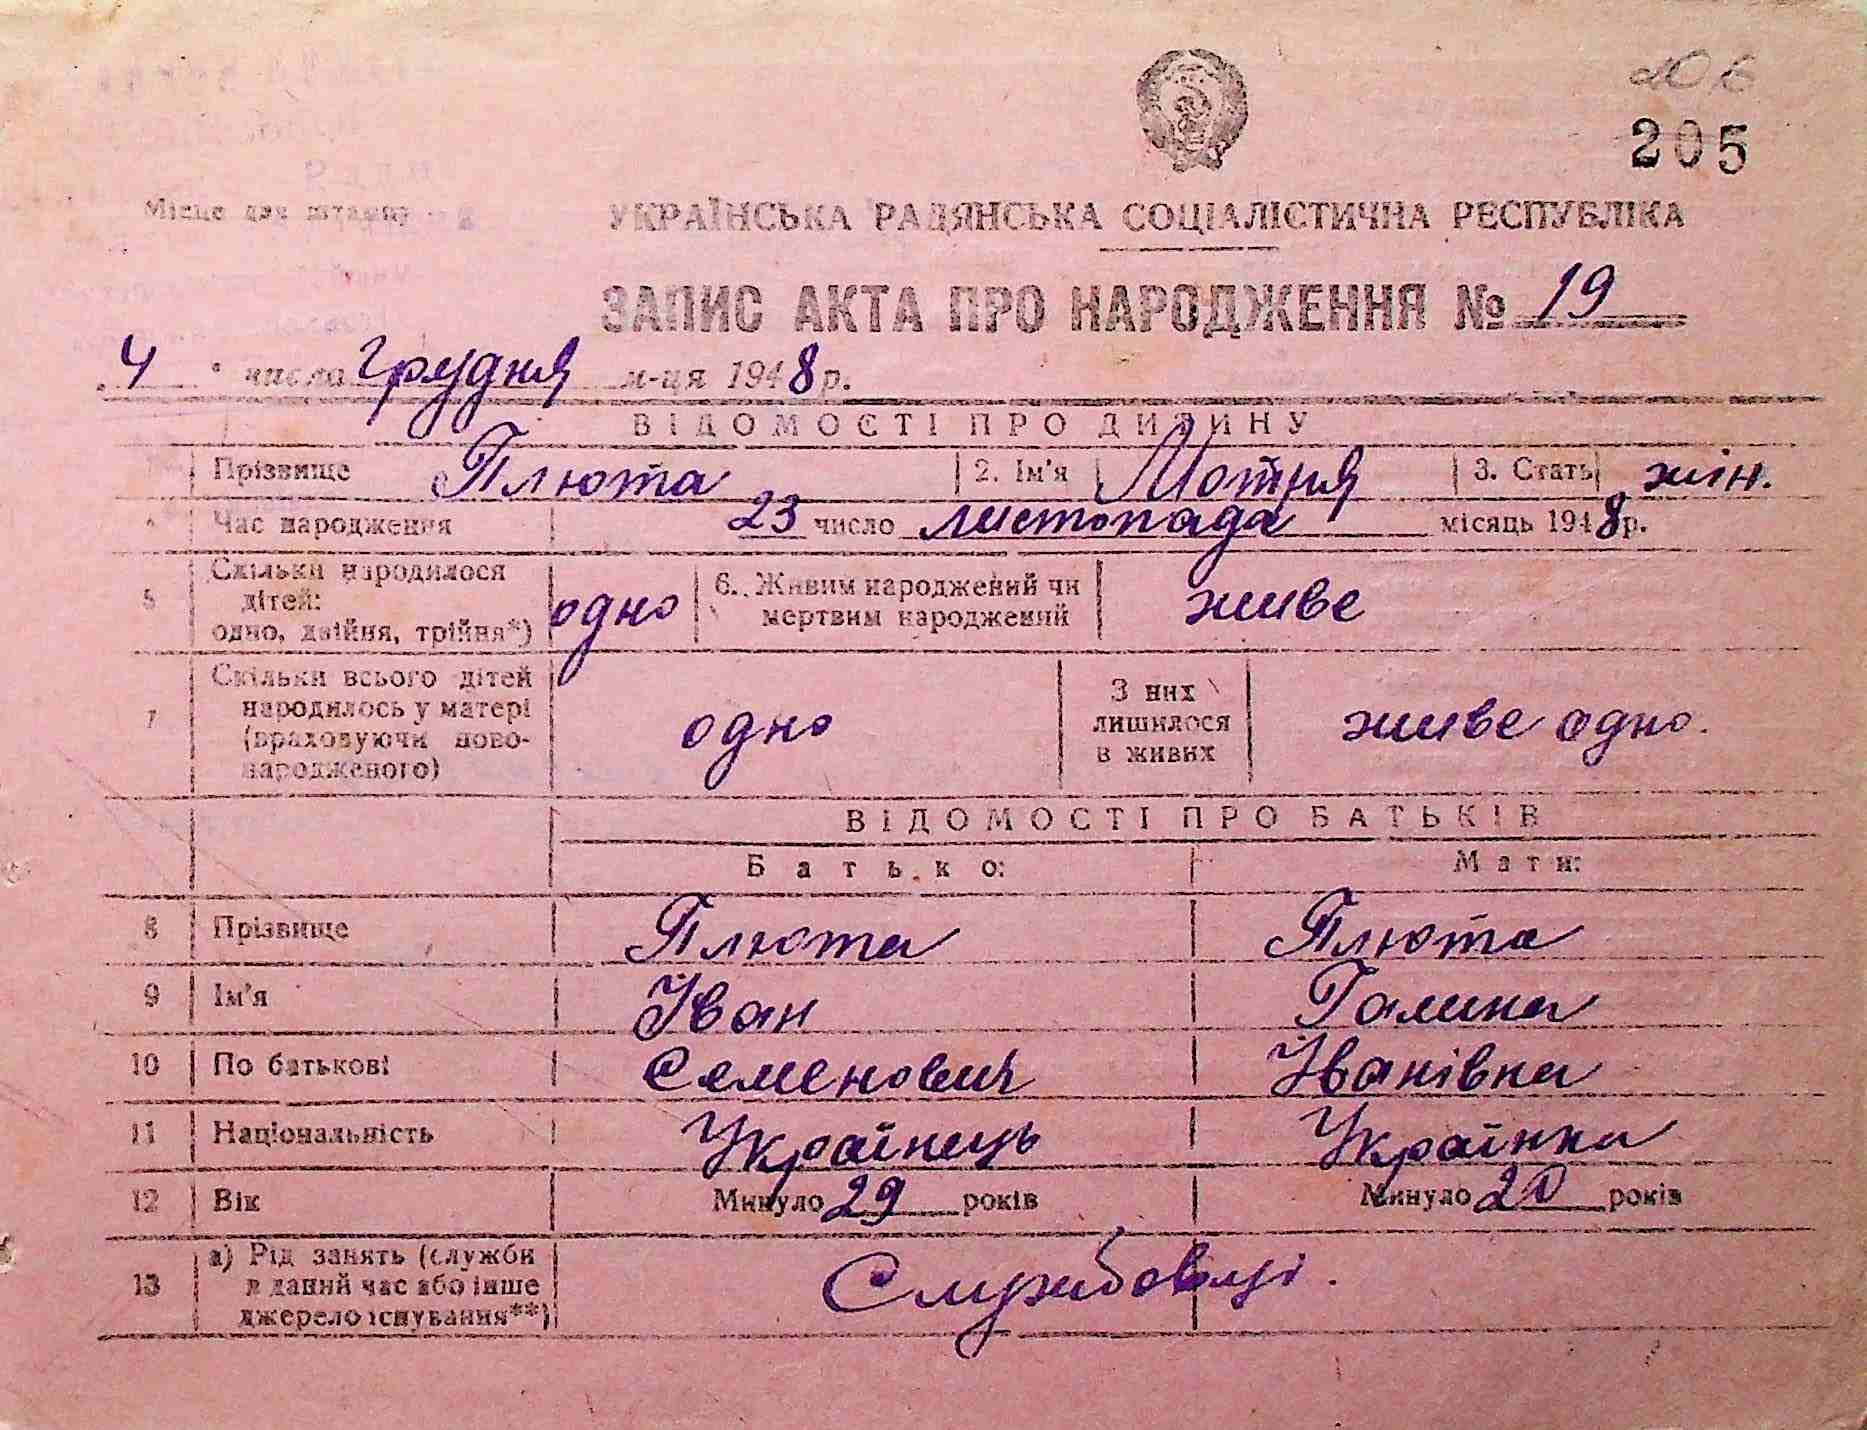 205
Місце для штампу
УКРАЇНСЬКА РАДЯНСЬКА СОЦІАЛІСТИЧНА РЕСПУБЛІКА
ЗАПИС АКТА ПРО НАРОДЖЕННЯ № 19
4 числа грудня м-ця 1948 р.
ВІДОМОСТІ ПРО ДИТИНУ
Прізвище Плюта 2. Ім'я Мотря 3. Стать жін.
Час народження 23 число листопада місяць 1948 р.
5 Скільки народилося дітей: одно, двійня, трійня*) одно 6. Живим народжений чи мертвим народжений живе
7 Скільки всього дітей народилось у матері (враховуючи новонародженого) одно З них лишилося в живих живе одно.
ВІДОМОСТІ ПРО БАТЬКІВ
Батько: Мати:
8 Прізвище Плюта Плюта
9 Ім'я Іван Галина
10 По батькові Семенович Іванівна
11 Національність Українець Українка
12 Вік Минуло 29 років Минуло 20 років
13 а) Рід занять (служби в даний час або інше джерело існування**) Службовці.